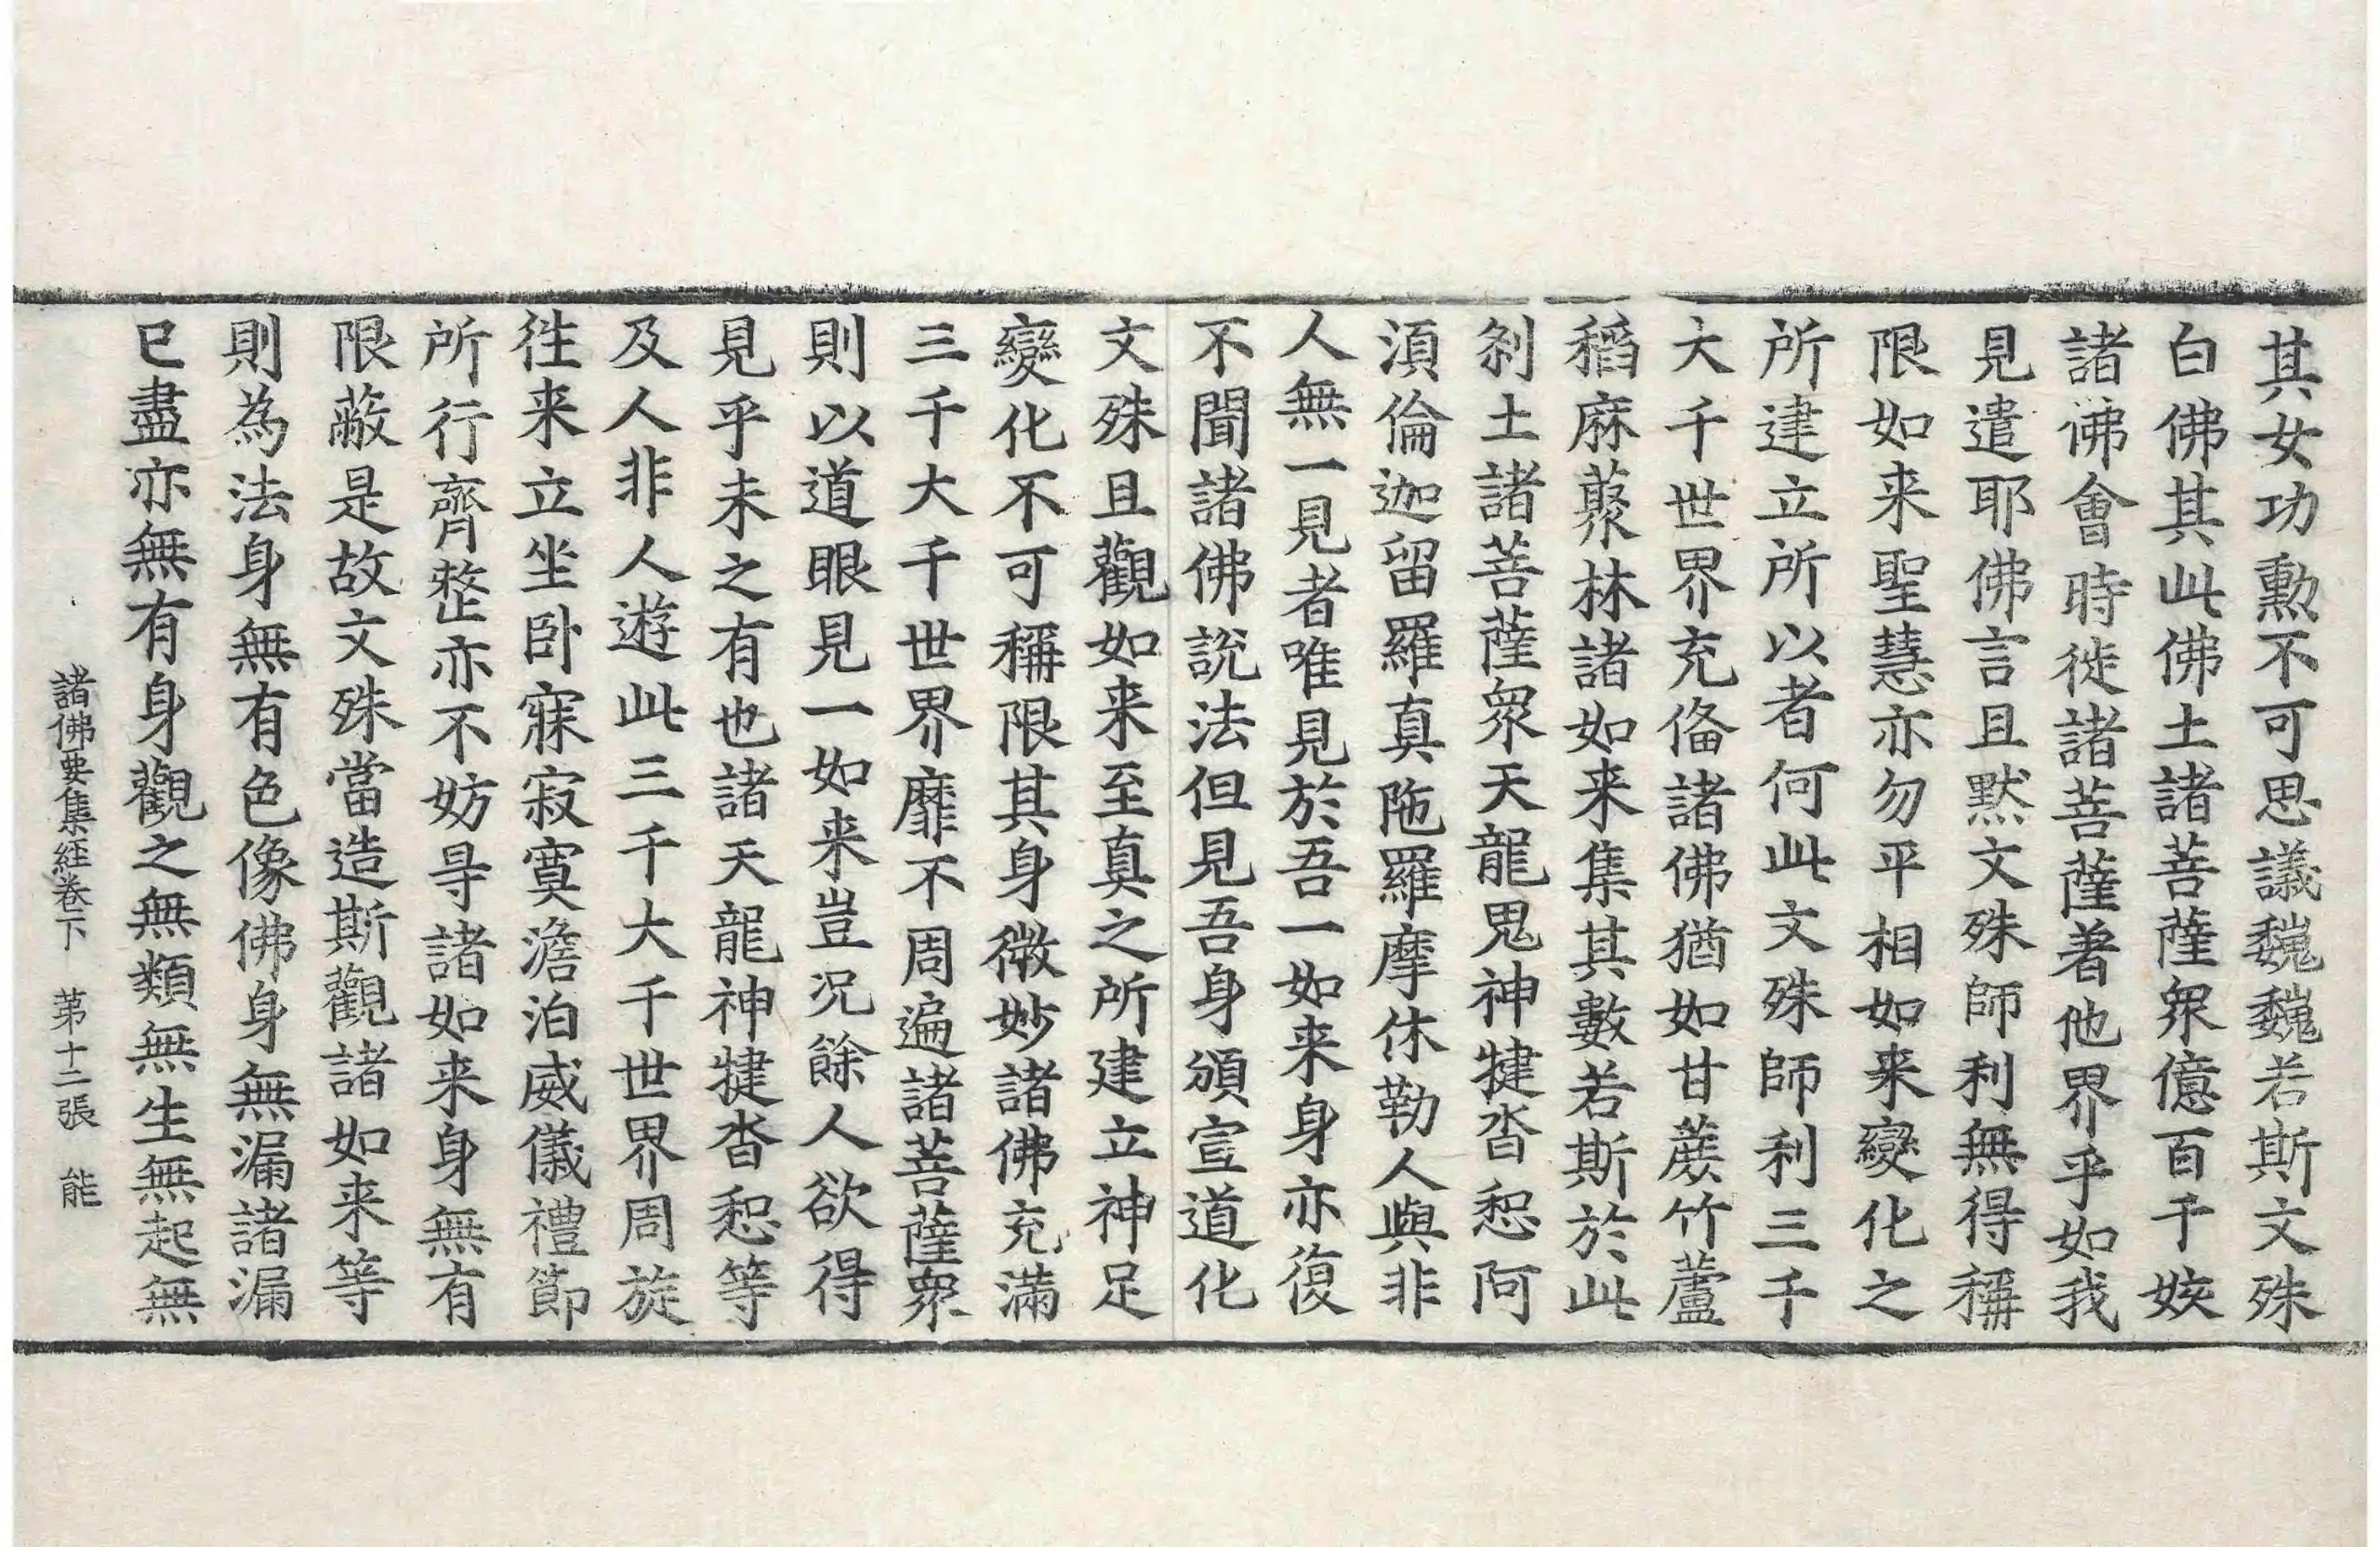 其女功勳不可思議巍巍若斯文殊
白佛其此佛土諸菩薩衆億百千姟
諸佛會時徙諸菩薩著他界乎如我
見遣耶佛言且黙文殊師利無得稱
限如来聖慧亦勿平相如来變化之
所建立所以者何此文殊師利三千
大千世界充俻諸佛猶如甘蔗竹蘆
稻麻藂林諸如来集其數若斯於此
刹土諸菩薩衆天龍鬼神揵沓惒阿
湏倫迦留羅真陁羅摩休勒人與非
人無一見者唯見於吾一如来身亦復
不聞諸佛說法但見吾身頒宣道化
文殊且觀如来至真之所建立神足
變化不可稱限其身微妙諸佛充滿
三千大千世界靡不周遍諸菩薩衆
則以道眼見一如来豈况餘人欲得
見乎未之有也諸天龍神揵沓惒等
及人非人遊此三千大千世界周旋
徃来立坐卧寐寂寞澹泊威儀禮節
所行齊整亦不妨㝵諸如来身無有
限蔽是故文殊當造斯觀諸如来等
則為法身無有色像佛身無漏諸漏
已盡亦無有身觀之無類無生無起無
諸佛要集経卷下　苐十二張　能